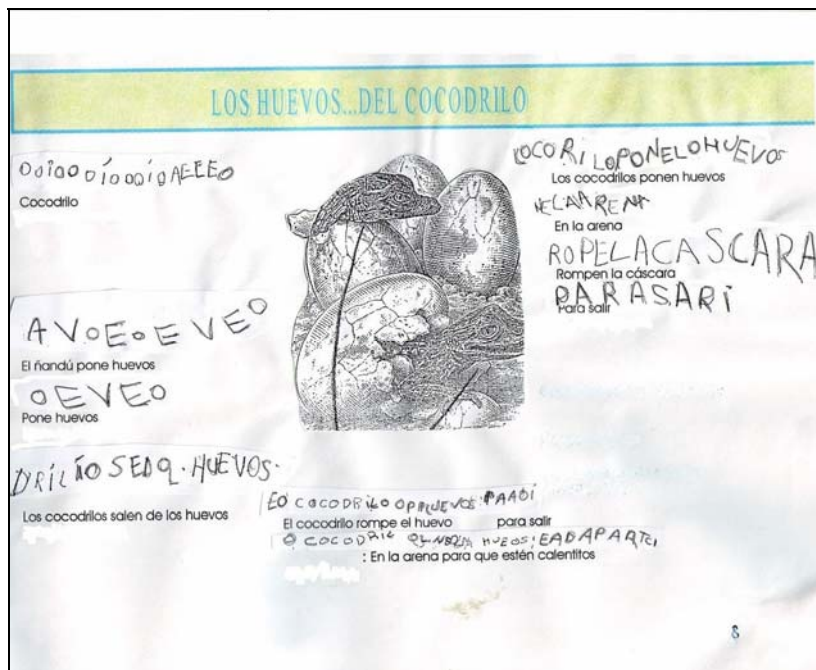 LOS HUEVOS...DEL COCODRILO
Cocodrilo
AVOEOEVEO
El ñandú pone huevos
OEVEO
Pone huevos
HUEVOS.
Los cocodrilos salen de los huevos
COCORILOPONELOHUEVOS
Los cocodrilos ponen huevos
NELAARENA
En la arena
ROPELACASCARA
Rompen la cáscara
PARASARI
Para salir
EO COCODRILO
El cocodrilo rompe el huevo para salir
O COCODRIL
: En la arena para que estén calentitos
8